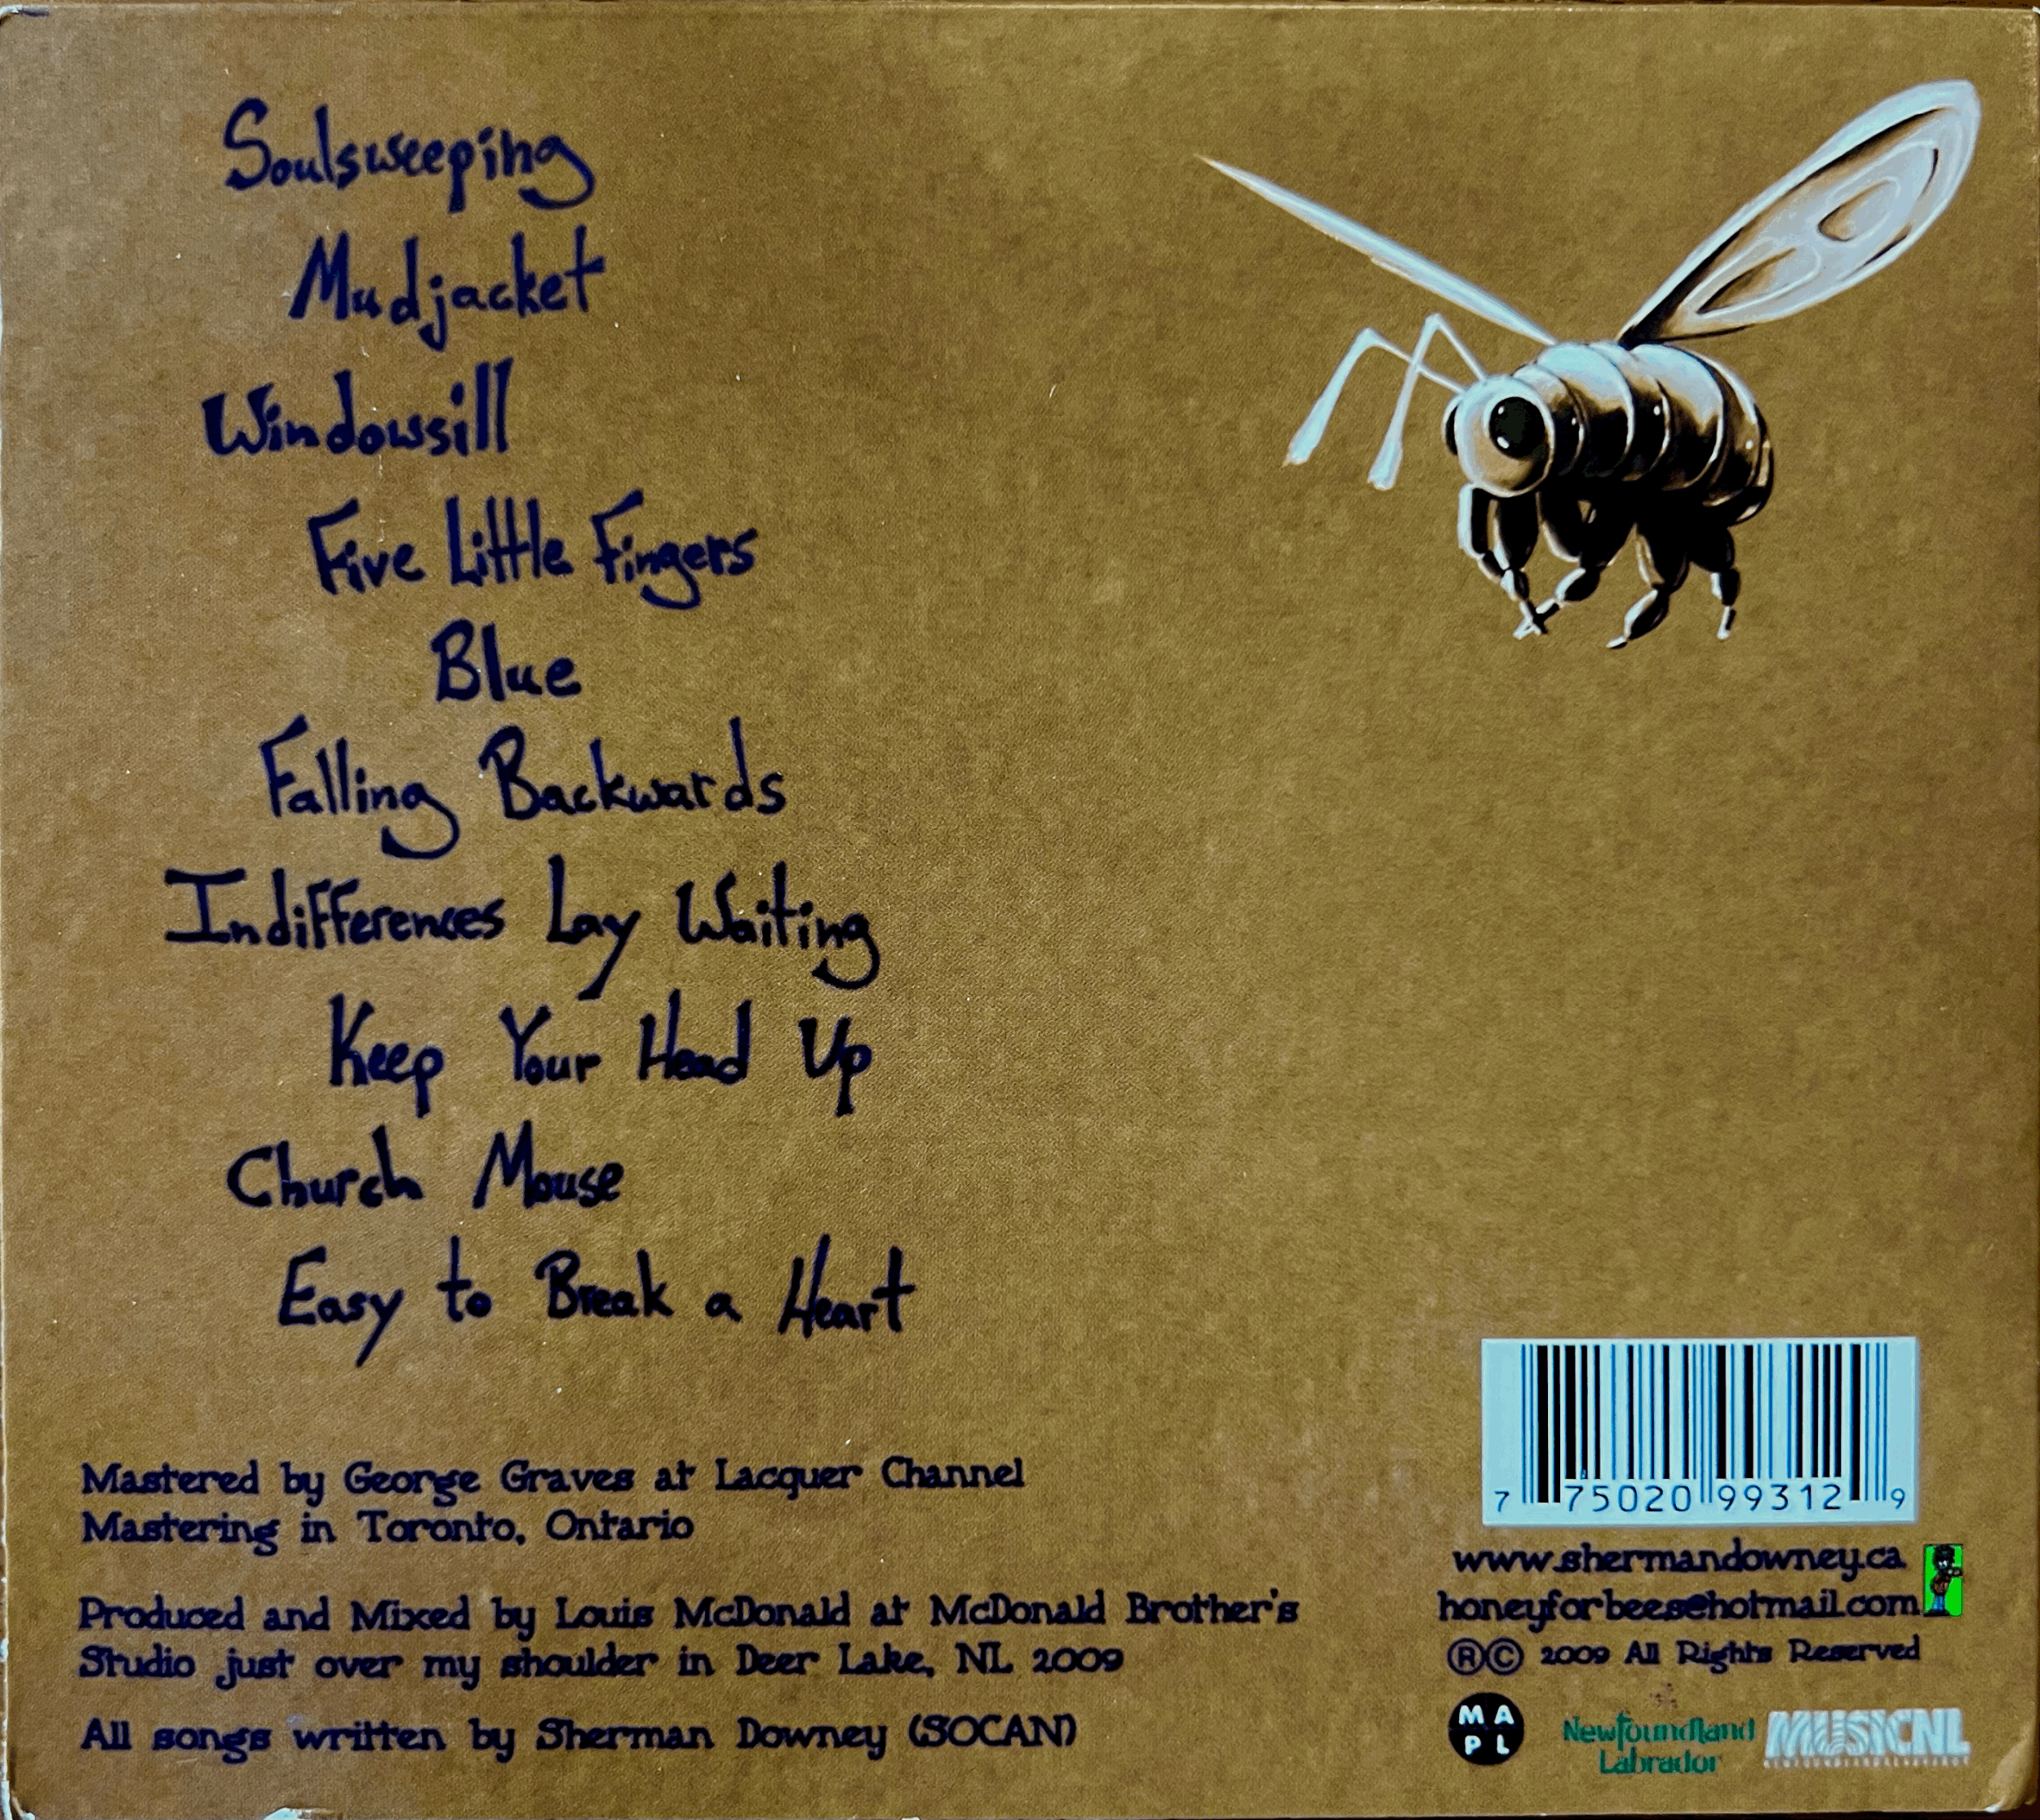 Soulsweeping
Mudjacket
Windowsill
Five Little Fingers
Blue
Falling Backwards
Indifferences Lay Waiting
Keep Your Head Up
Church Mouse
Easy to Break a Heart
Mastered by George Graves at Lacquer Channel
Mastering in Toronto, Ontario
Produced and Mixed by Louis McDonald at McDonald Brother's
Studio just over my shoulder in Deer Lake, NL 2009
All songs written by Sherman Downey (SOCAN)
7 75020 99312 9
www.shermandowney.ca
honeyforbees@hotmail.com
®© 2009 All Rights Reserved
MA
PL
Newfoundland
Labrador
MUSICNL